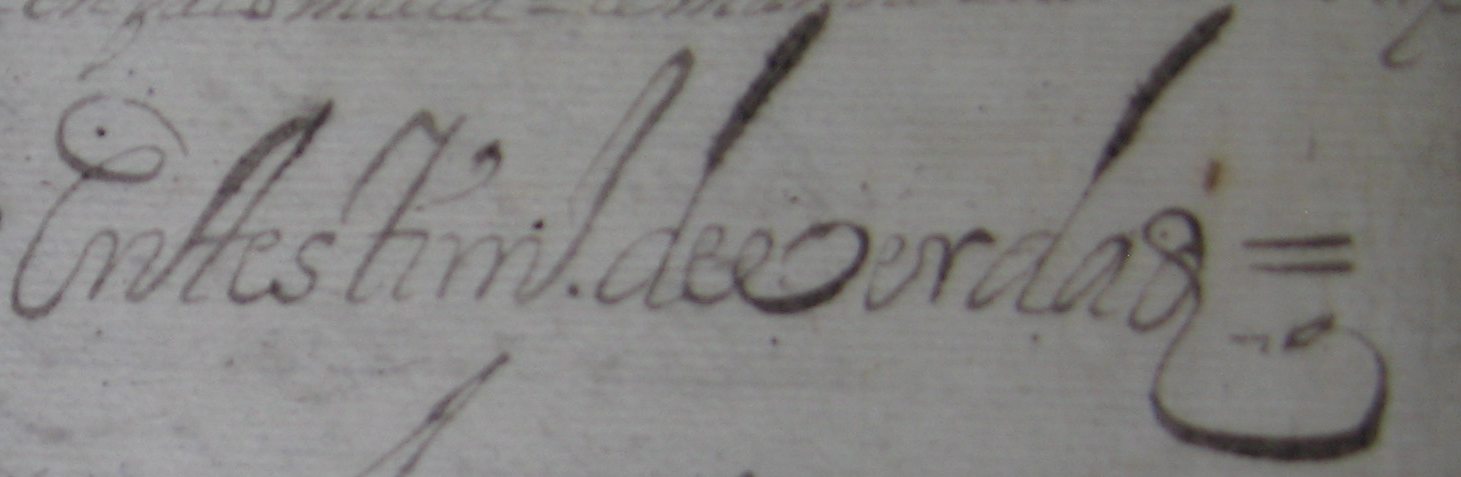 En ttestim.º de verdad =